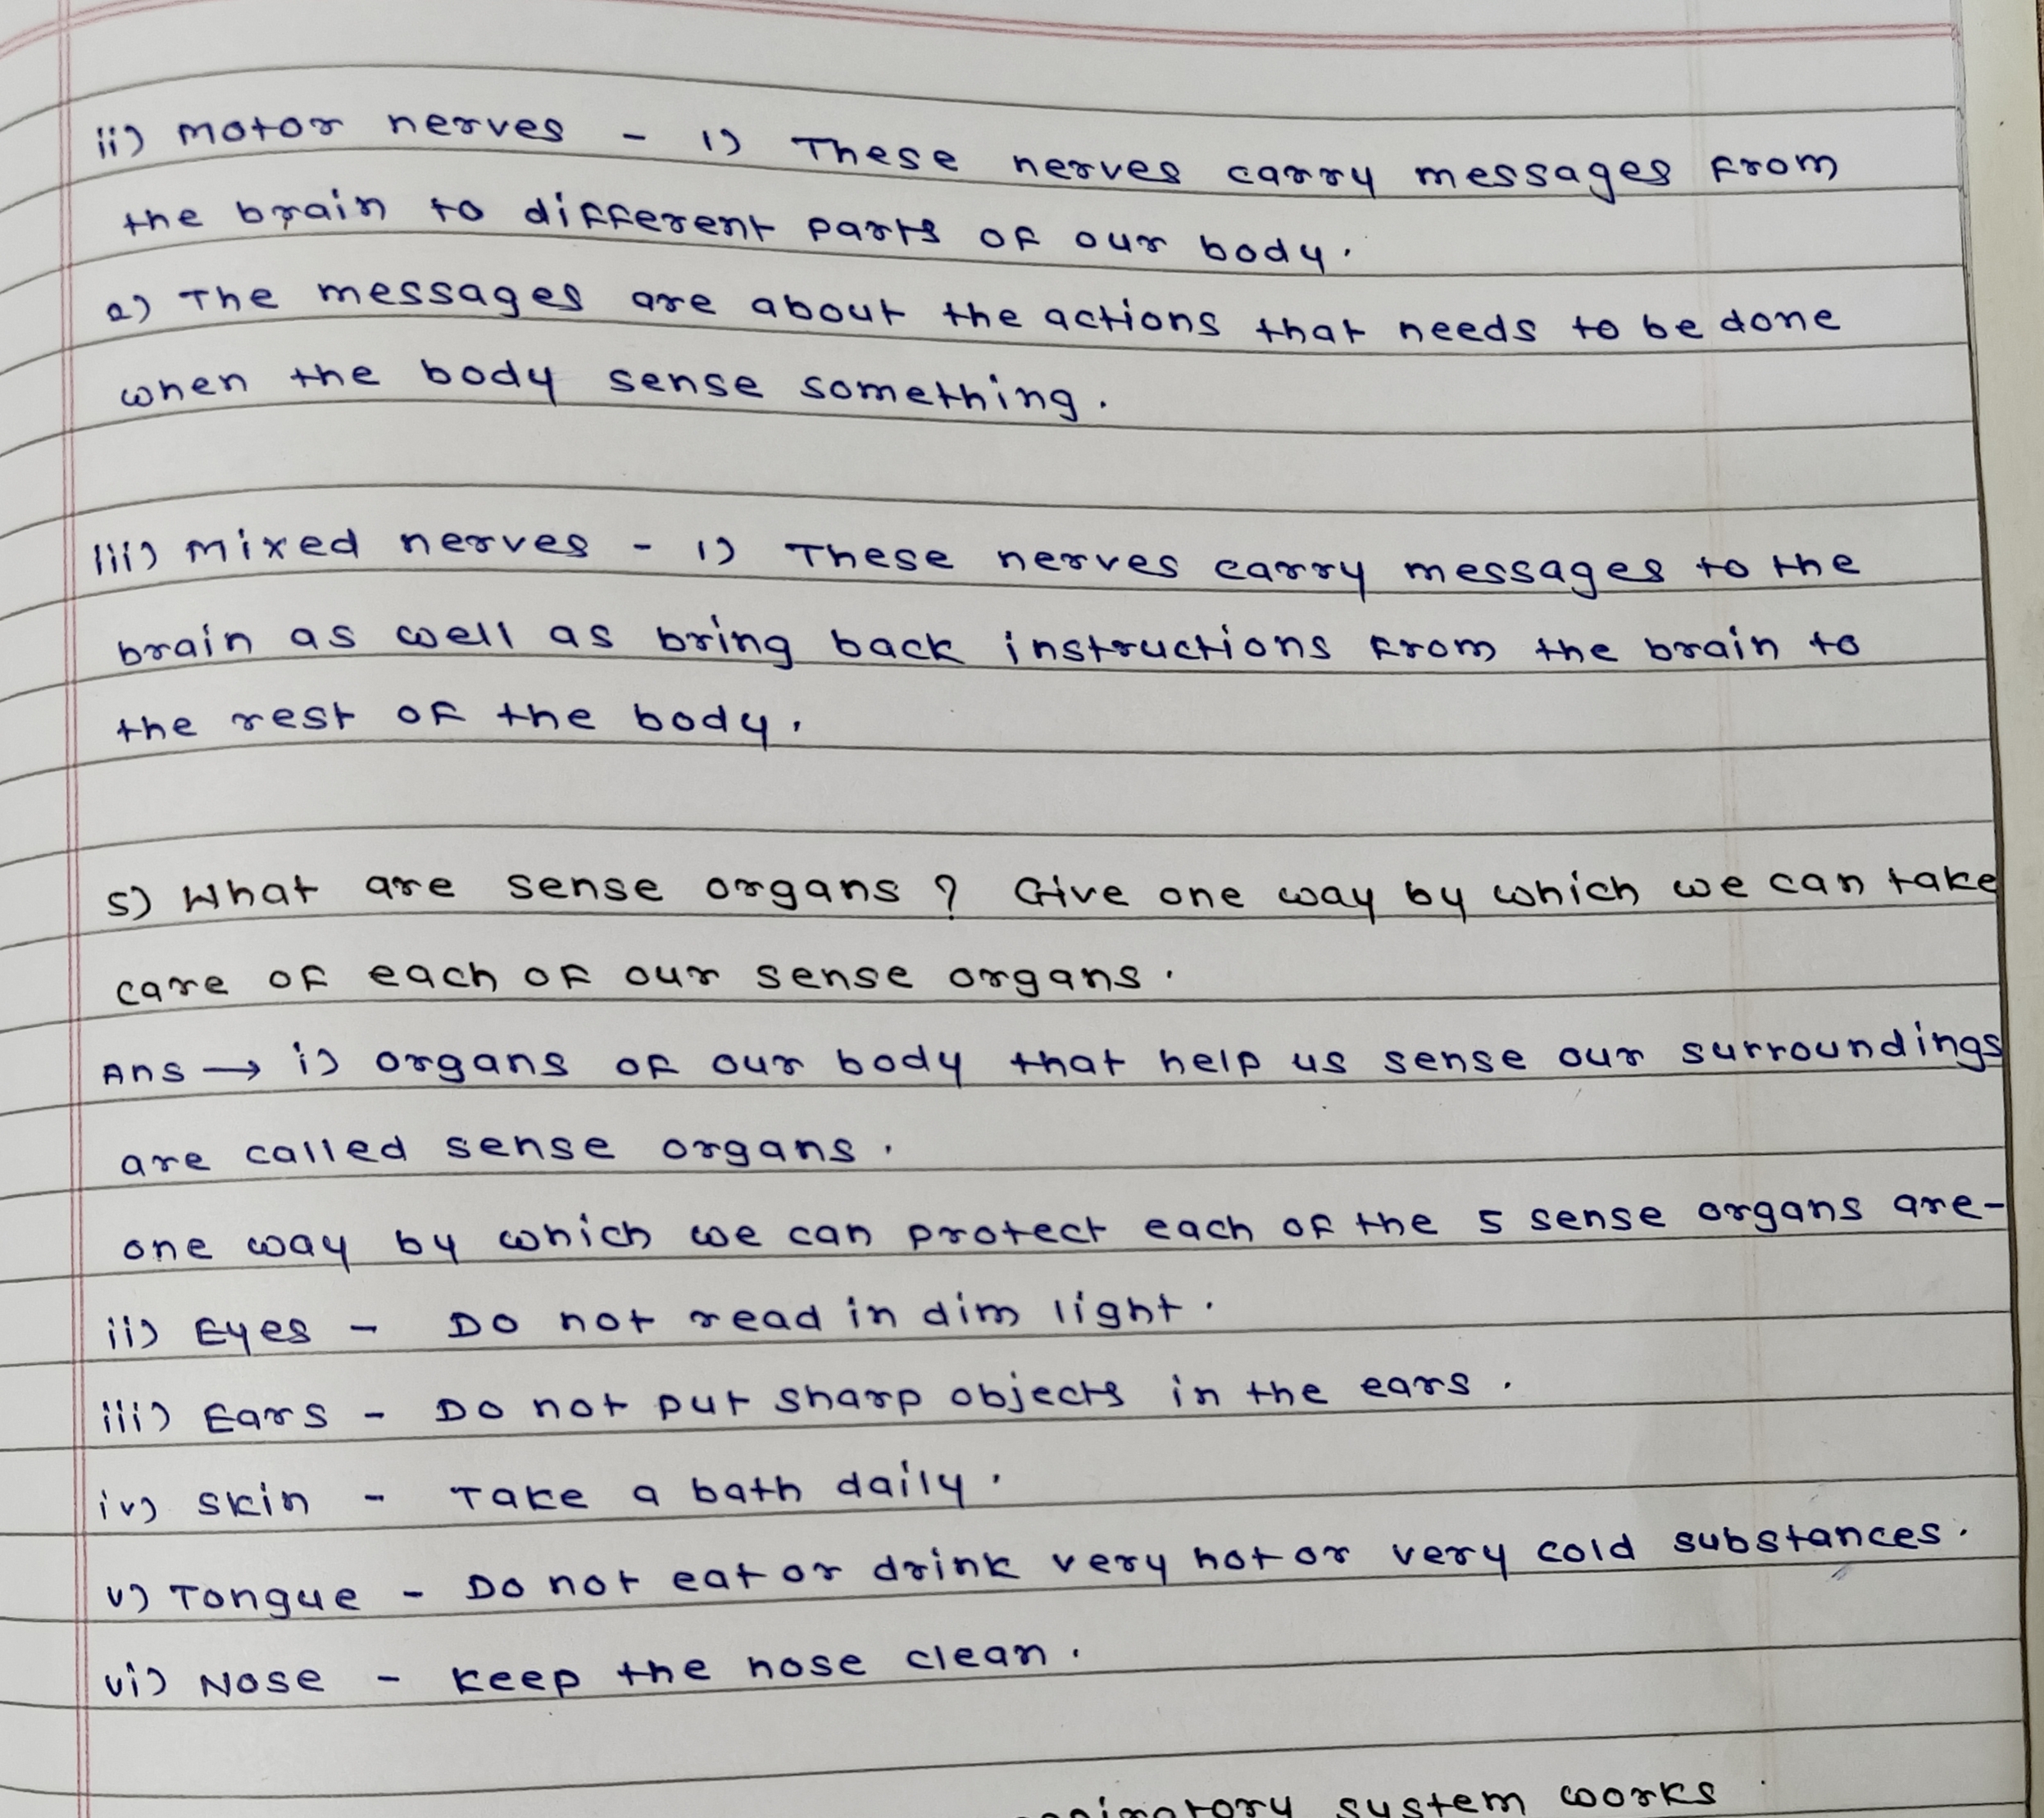 ii) Motor nerves - 1) These nerves carry messages from
the brain to different parts of our body.
2) The messages are about the actions that needs to be done
when the body sense something.
iii) Mixed nerves - 1) These nerves carry messages to the
brain as well as bring back instructions from the brain to
the rest of the body.
5) What are sense organs ? Give one way by which we can take
care of each of our sense organs.
Ans → i) organs of our body that help us sense our surroundings
are called sense organs.
one way by which we can protect each of the 5 sense organs are-
ii) Eyes - Do not read in dim light.
iii) Ears - Do not put sharp objects in the ears.
iv) Skin - Take a bath daily.
v) Tongue - Do not eat or drink very hot or very cold substances.
vi) Nose - Keep the nose clean.
system works